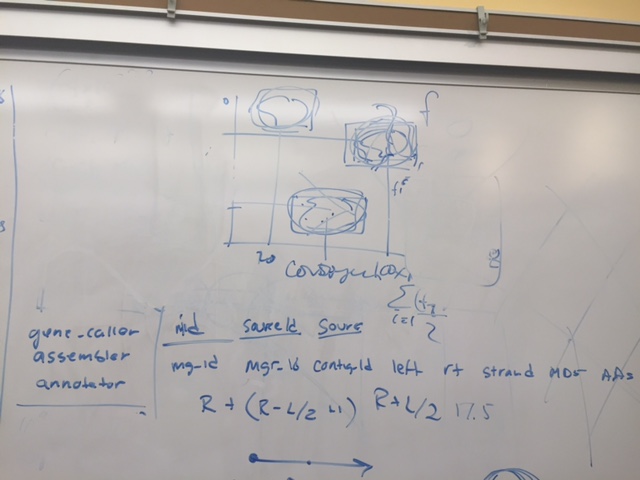 f
20 Coverage 100x
gene-caller
assembler
annotator
mid source Id Source
mg-id mgr-id contig-id left rt strand MD5 AAs
R + (R-L/2 +1) R+L/2 17.5